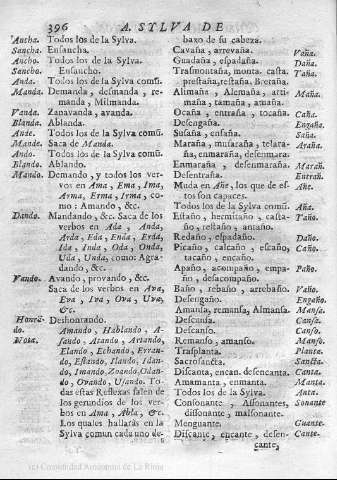 396 A. SYLVA DE
Ancha. Todos los de la Sylva.
Sancha. Ensancha.
Ancho. Todos los de la Sylva.
Sancho. Ensancho.
Anda. Todos los de la Sylva comũ.
Manda. Demanda, desmanda, re-
manda, Milmanda.
Vanda. Zanavanda, avanda.
Blanda. Ablanda.
Ande. Todos los de la Sylva comũ.
Mande. Saca de Manda.
Ando. Todos los de la Sylva comũ.
Blando. Ablando.
Mando. Demando, y todos los ver-
vos en Ama, Ema, Ima,
Arma, Erma, Irma, co-
mo: Amando, &c.
Dando. Mandando, &c. Saca de los
verbos en Ada, Anda,
Arda, Eda, Enda, Erda,
Ida, Inda, Oda, Onda,
Uda, Unda, como: Agra-
dando, &c.
Vando. Avando, provando, &c.
Saca de los verbos en Ava,
Eva, Iva, Ova, Uva,
&c.
Honrã- Deshonrando.
do. Amando, Hablando, A-
Nota. sando, Atando, Artando,
Elando, Echando, Erran-
do, Estando, Ilando, Idan-
do, Imando, Izando, Odan-
do, Ovando, Usando. To-
das estas Reflexas salen de
los gerundios de los ver-
bos en Ama, Abla, &c.
Los quales hallarás en la
Sylva comun cada uno de-
baxo de su cabeza.
Cavaña, arrevaña. Vaña.
Guadaña, espadaña. Daña.
Trasmontaña, monta. casta. Taña.
prestaña, restaña, Bretaña.
Alimaña, Alemaña, arti- Maña.
maña, tamaña, amaña.
Ocaña, entraña, tocaña. Caña.
Desengaña. Engaña.
Susaña, ensaña. Saña.
Maraña, musaraña, telara- Araña.
ña, enmaraña, desenmara.
Enmaraña, desenmaraña. Marañ.
Desentraña. Entrañ.
Muda en Añe, los que de es- Añe.
tos son capaces.
Todos los de la Sylva comũ. Año.
Estaño, hermitaño, casta- Taño.
ño, restaño, antaño.
Redaño, espadaño. Daño.
Picaño, calcaño, escaño, Caño.
tacaño, encaño.
Apaño, acompaño, empa- Paño.
ño, desacompaño.
Baño, rebaño, arrebaño. Vaño.
Desengaño. Engaño.
Amansa, remansa, Almansa. Mansa.
Descansa. Cansa.
Descanso. Canso.
Remanso, amanso. Manso.
Trasplanta. Plante.
Sacrosancta. Sancta.
Discanta, encan. desencanta. Canta.
Amamanta, enmanta. Manta.
Todos los de la Sylva. Anta.
Consonante, Assonantes, Sonante
dissonante, malsonante.
Menguante. Guante.
Discante, encante, desen- Cante.
cante,
(c) Comunidad Autónoma de La Rioja